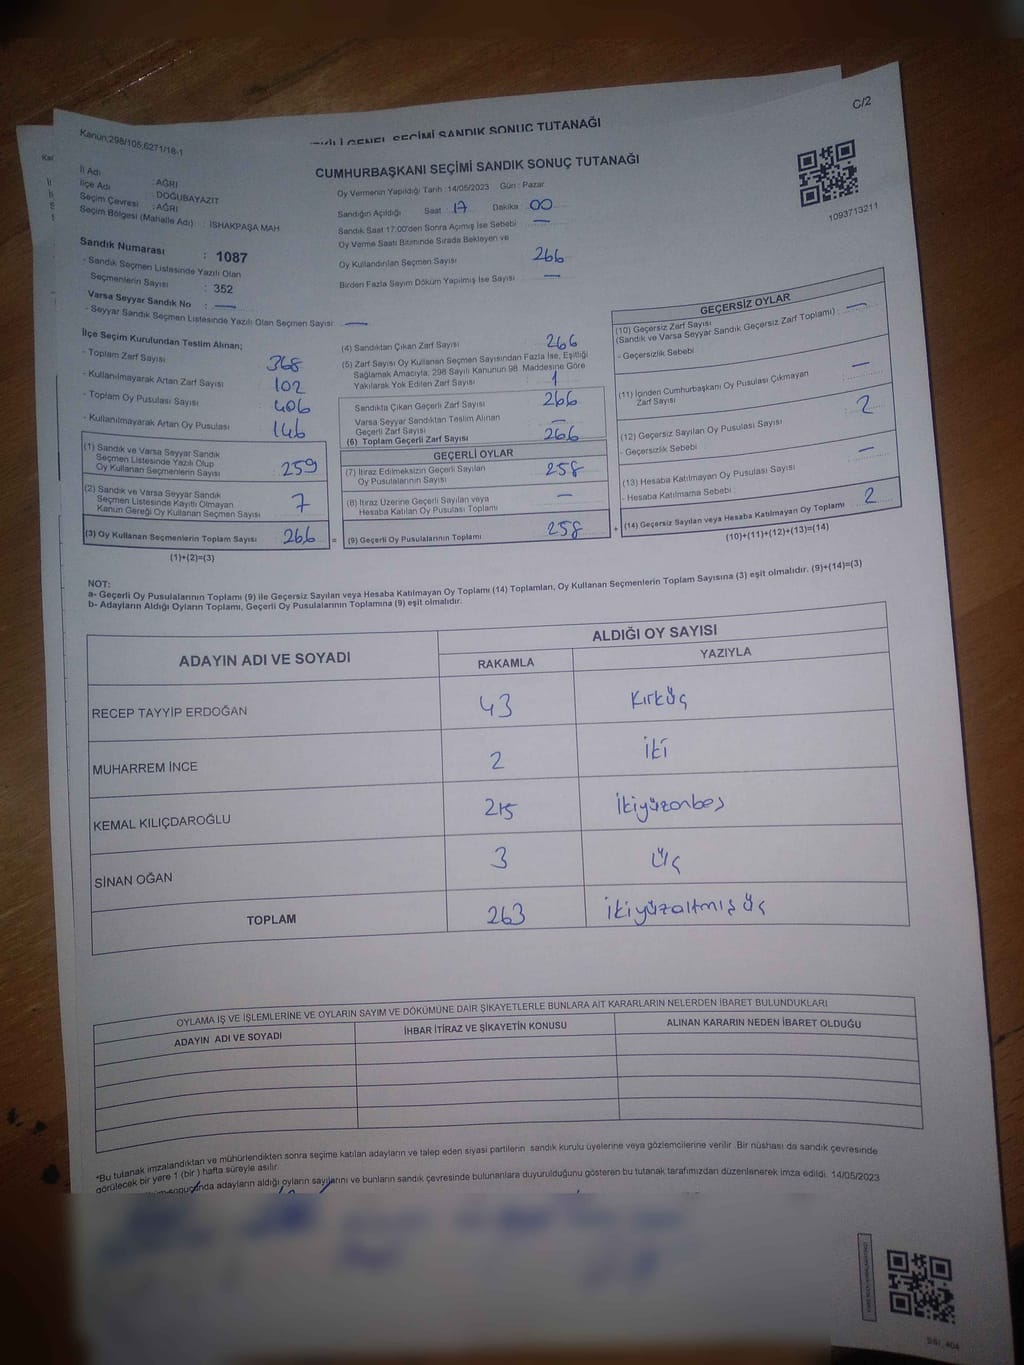 C/2
Kanun:298/105,6271/18-1
CUMHURBAŞKANI SEÇİMİ SANDIK SONUÇ TUTANAĞI
İl Adı : AĞRI
İlçe Adı : DOĞUBAYAZIT
Seçim Çevresi : AĞRI
Seçim Bölgesi (Mahalle Adı) : İSHAKPAŞA MAH
Sandık Numarası : 1087
- Sandık Seçmen Listesinde Yazılı Olan
Seçmenlerin Sayısı : 352
Varsa Seyyar Sandık No : —
- Seyyar Sandık Seçmen Listesinde Yazılı Olan Seçmen Sayısı : —
Oy Vermenin Yapıldığı Tarih : 14/05/2023 Gün : Pazar
Sandığın Açıldığı Saat 17 Dakika 00
Sandık Saat 17.00'den Sonra Açımış İse Sebebi —
Oy Verme Saati Bitiminde Sırada Bekleyen ve
Oy Kullandırılan Seçmen Sayısı 266
Birden Fazla Sayım Döküm Yapılmış İse Sayısı —
1093713211
İlçe Seçim Kurulundan Teslim Alınan;
- Toplam Zarf Sayısı : 368
- Kullanılmayarak Artan Zarf Sayısı : 102
- Toplam Oy Pusulası Sayısı : 406
- Kullanılmayarak Artan Oy Pusulası : 146
(1) Sandık ve Varsa Seyyar Sandık
Seçmen Listesinde Yazılı Olup
Oy Kullanan Seçmenlerin Sayısı 259
(2) Sandık ve Varsa Seyyar Sandık
Seçmen Listesinde Kayıtlı Olmayan
Kanun Gereği Oy Kullanan Seçmen Sayısı 7
(3) Oy Kullanan Seçmenlerin Toplam Sayısı 266
(1)+(2)=(3)
(4) Sandıktan Çıkan Zarf Sayısı 266
(5) Zarf Sayısı Oy Kullanan Seçmen Sayısından Fazla İse, Eşitliği
Sağlamak Amacıyla; 298 Sayılı Kanunun 98. Maddesine Göre
Yakılarak Yok Edilen Zarf Sayısı 1
Sandıkta Çıkan Geçerli Zarf Sayısı 266
Varsa Seyyar Sandıktan Teslim Alınan
Geçerli Zarf Sayısı —
(6) Toplam Geçerli Zarf Sayısı 266
GEÇERLİ OYLAR
(7) İtiraz Edilmeksizin Geçerli Sayılan
Oy Pusulalarının Sayısı 258
(8) İtiraz Üzerine Geçerli Sayılan veya
Hesaba Katılan Oy Pusulası Toplamı —
= (9) Geçerli Oy Pusulalarının Toplamı 258
GEÇERSİZ OYLAR
(10) Geçersiz Zarf Sayısı
(Sandık ve Varsa Seyyar Sandık Geçersiz Zarf Toplamı) : —
- Geçersizlik Sebebi
(11) İçinden Cumhurbaşkanı Oy Pusulası Çıkmayan
Zarf Sayısı —
(12) Geçersiz Sayılan Oy Pusulası Sayısı 2
- Geçersizlik Sebebi
(13) Hesaba Katılmayan Oy Pusulası Sayısı —
- Hesaba Katılmama Sebebi :
+ (14) Geçersiz Sayılan veya Hesaba Katılmayan Oy Toplamı 2
(10)+(11)+(12)+(13)=(14)
NOT:
a- Geçerli Oy Pusulalarının Toplamı (9) ile Geçersiz Sayılan veya Hesaba Katılmayan Oy Toplamı (14) Toplamları, Oy Kullanan Seçmenlerin Toplam Sayısına (3) eşit olmalıdır. (9)+(14)=(3)
b- Adayların Aldığı Oyların Toplamı, Geçerli Oy Pusulalarının Toplamına (9) eşit olmalıdır.
ADAYIN ADI VE SOYADI ALDIĞI OY SAYISI
RAKAMLA YAZIYLA
RECEP TAYYİP ERDOĞAN 43 Kırküç
MUHARREM İNCE 2 İki
KEMAL KILIÇDAROĞLU 215 İkiyüzonbeş
SİNAN OĞAN 3 Üç
TOPLAM 263 İkiyüzaltmış üç
OYLAMA İŞ VE İŞLEMLERİNE VE OYLARIN SAYIM VE DÖKÜMÜNE DAİR ŞİKAYETLERLE BUNLARA AİT KARARLARIN NELERDEN İBARET BULUNDUKLARI
ADAYIN ADI VE SOYADI İHBAR İTİRAZ VE ŞİKAYETİN KONUSU ALINAN KARARIN NEDEN İBARET OLDUĞU
*Bu tutanak imzalandıktan ve mühürlendikten sonra seçime katılan adayların ve talep eden siyasi partilerin sandık kurulu üyelerine veya gözlemcilerine verilir. Bir nüshası da sandık çevresinde
görülecek bir yere 1 (bir) hafta süreyle asılır.
adayların aldığı oyların sayılarını ve bunların sandık çevresinde bulunanlara duyurulduğunu gösteren bu tutanak tarafımızdan düzenlenerek imza edildi. 14/05/2023